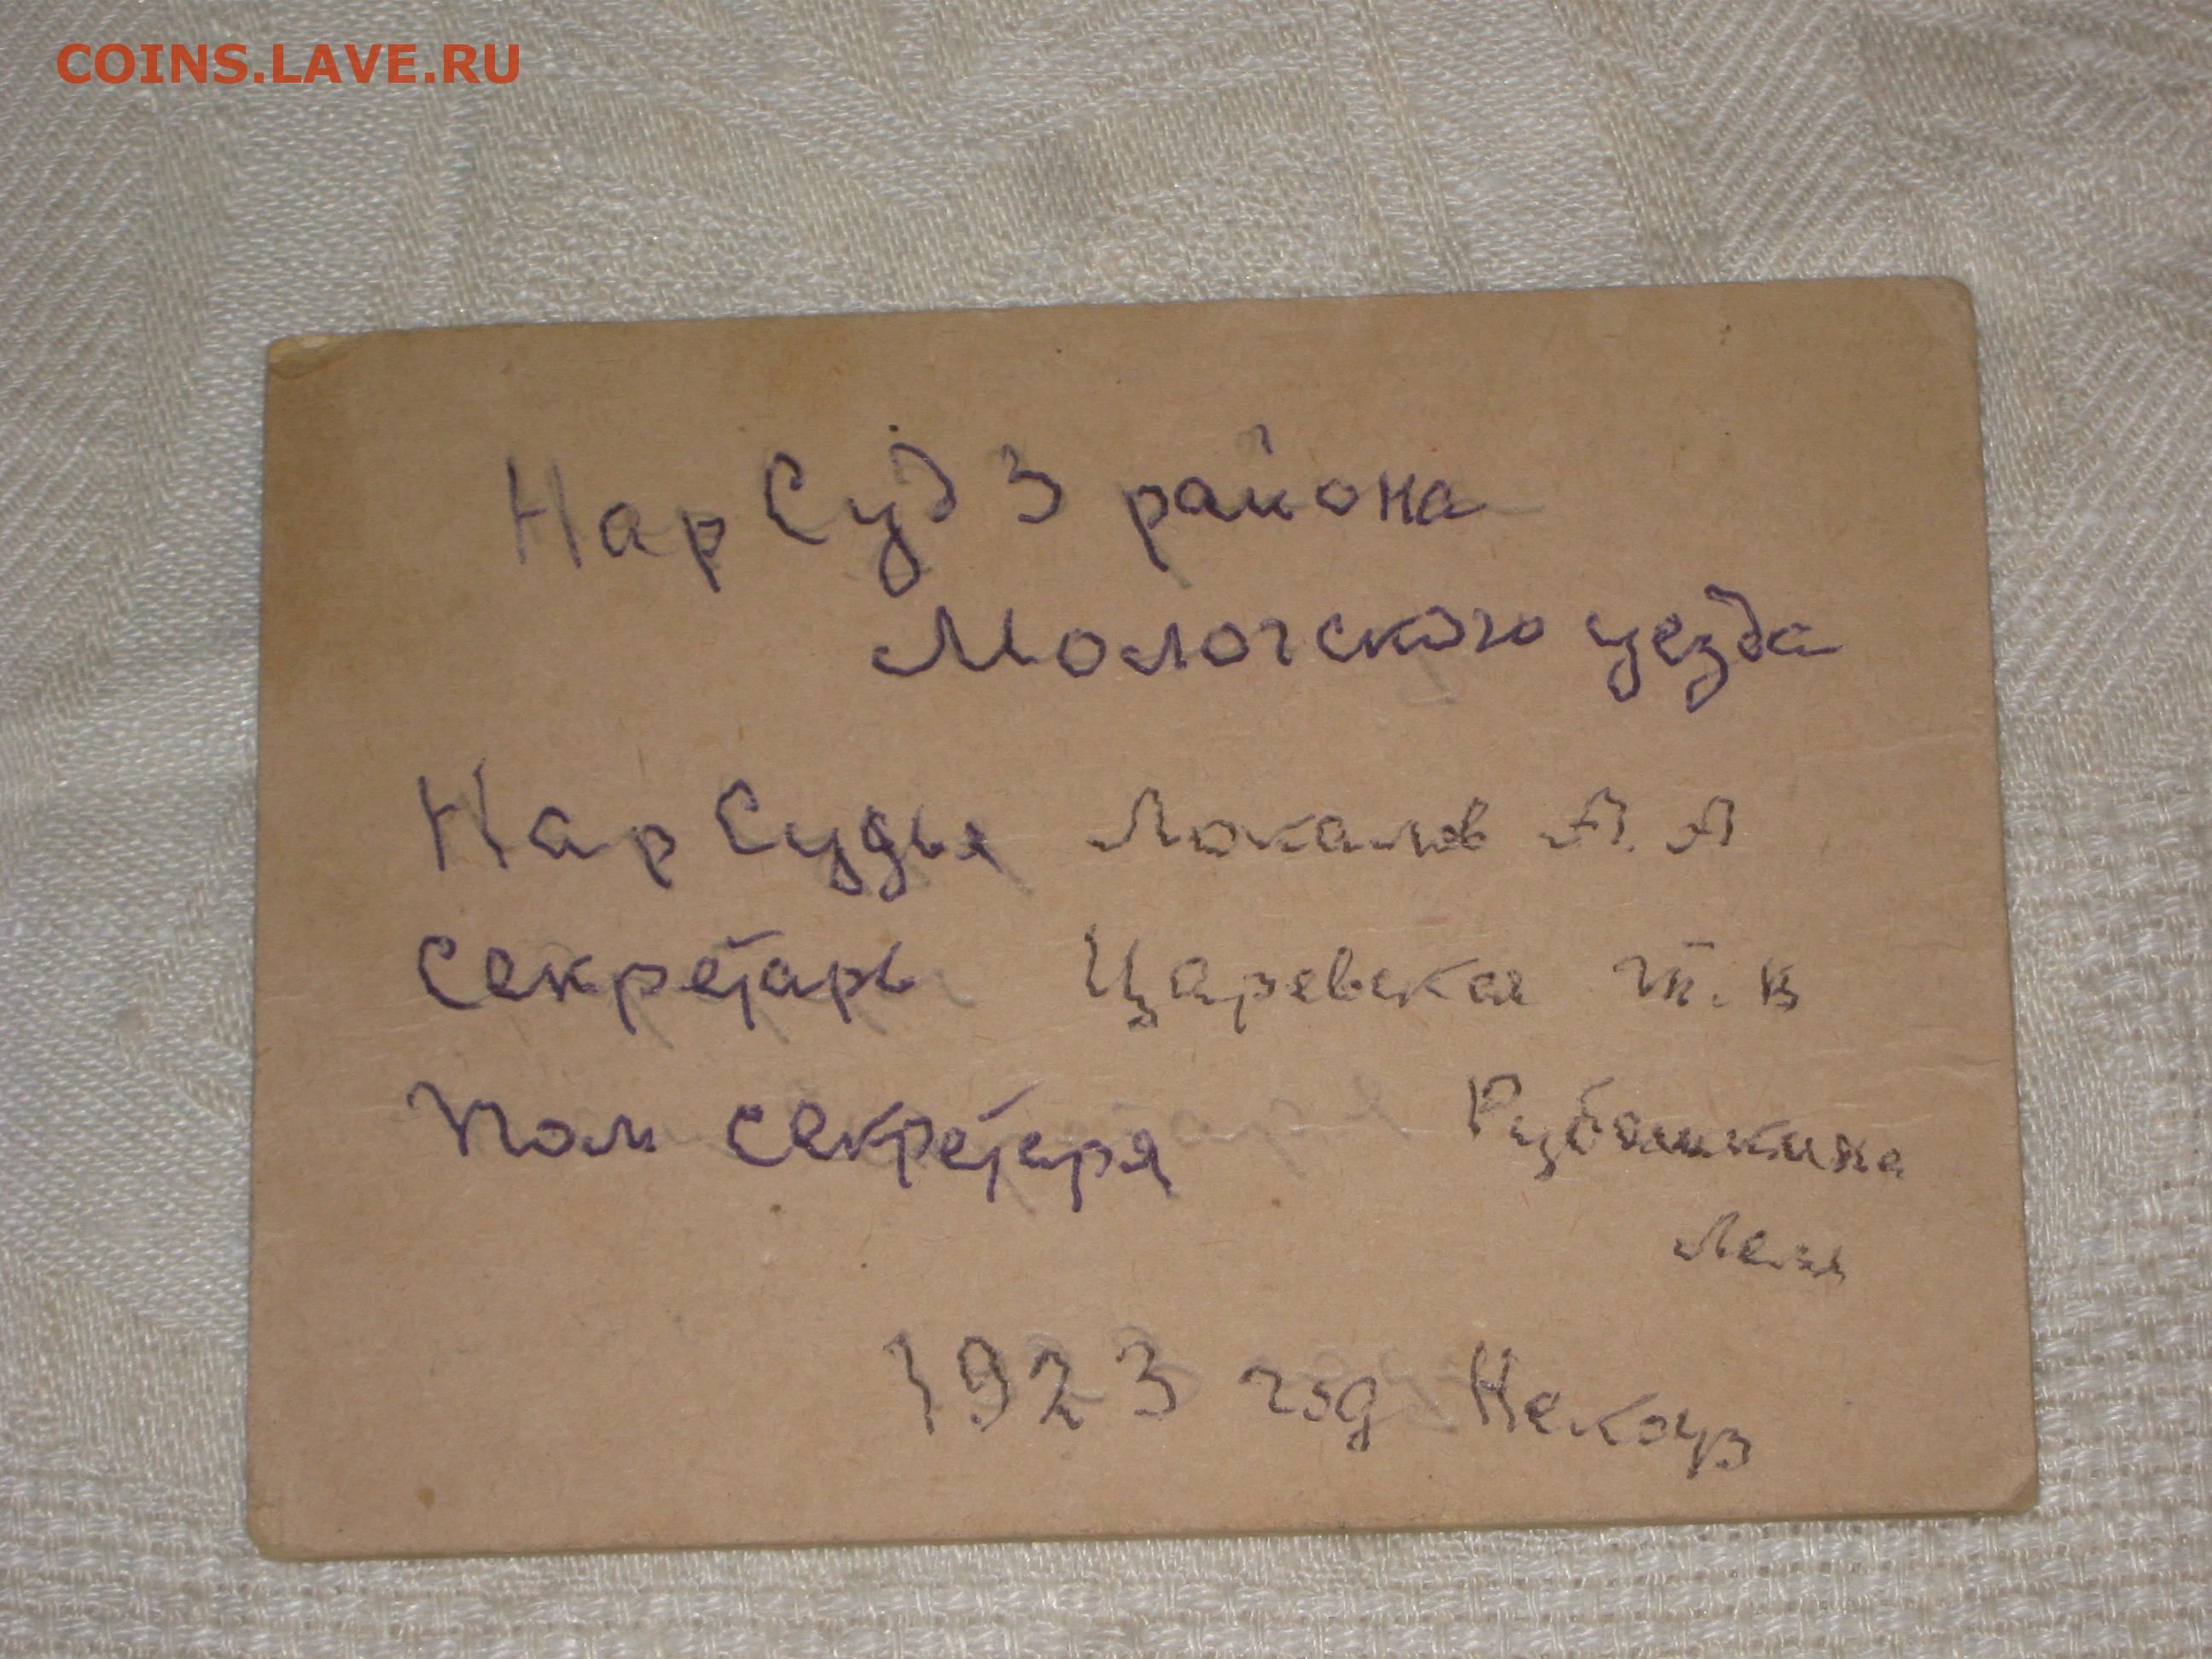 COINS.LAVE.RU
Нар Суд 3 района
Мологского уезда
Нар Судья Локалов А. А
Секретарь Царевская т. в
Пом секретаря Рубашкина
Леля
1923 год Некоуз